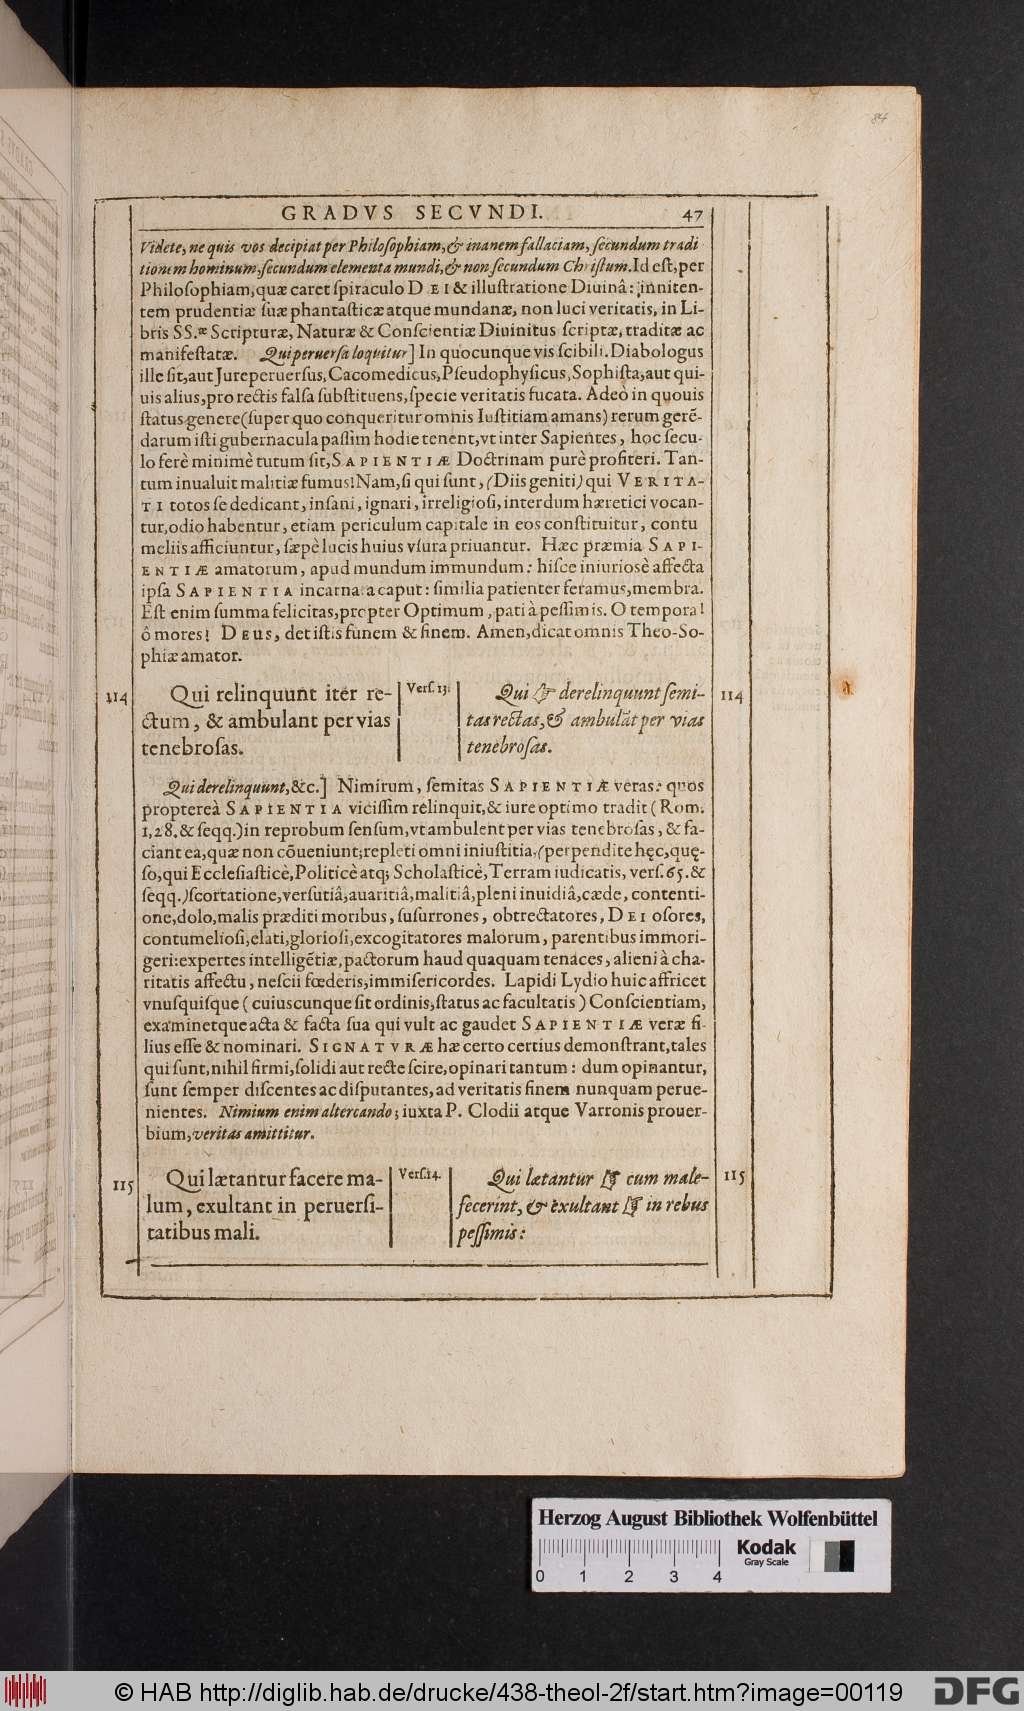 84
GRADVS SECVNDI. 47
Videte, ne quis vos decipiat per Philoſophiam, & inanem fallaciam, ſecundum tradi
tionem hominum, ſecundum elementa mundi, & non ſecundum Chriſtum. Id eſt, per
Philoſophiam, quæ caret ſpiraculo DEI & illuſtratione Diuinâ: innitentem
tem prudentiæ ſuæ phantaſticæ atque mundanæ, non luci veritatis, in Li-
bris SS.æ Scripturæ, Naturæ & Conſcientiæ Diuinitus ſcriptæ, traditæ ac
manifeſtatæ. Qui peruerſa loquitur] In quocunque vis ſcibili. Diabologus
ille ſit, aut Jureperuerſus, Cacomedicus, Pſeudophyſicus, Sophiſta, aut qui-
uis alius, pro rectis falſa ſubſtituens, ſpecie veritatis fucata. Adeò in quouis
ſtatus genere (ſuper quo conqueritur omnis Iuſtitiam amans) rerum gerẽ-
darum iſti gubernacula paſſim hodie tenent, vt inter Sapientes, hoc ſecu-
lo ferè minimè tutum ſit, SAPIENTIÆ Doctrinam purè profiteri. Tan-
tum inualuit malitiæ fumus! Nam, ſi qui ſunt, (Diis geniti) qui VERITA-
TI totos ſe dedicant, inſani, ignari, irreligioſi, interdum hæretici vocan-
tur, odio habentur, etiam periculum capitale in eos conſtituitur, contu
meliis afficiuntur, ſæpè lucis huius vſura priuantur. Hæc præmia SAPI-
ENTIÆ amatorum, apud mundum immundum: hiſce iniurioſè affecta
ipſa SAPIENTIA incarnata caput: ſimilia patienter feramus, membra.
Eſt enim ſumma felicitas, propter Optimum, pati à peſſimis. O tempora!
ô mores! DEUS, det iſtis funem & finem. Amen, dicat omnis Theo-So-
phiæ amator.
114 Qui relinquunt iter re-
ctum, & ambulant per vias
tenebroſas.
Verſ. 13.
Qui ☞ derelinquunt ſemi- 114
tas rectas, & ambulãt per vias
tenebroſas.
Qui derelinquunt, &c.] Nimirum, ſemitas SAPIENTIÆ veras: quos
proptereà SAPIENTIA viciſſim relinquit, & iure optimo tradit (Rom.
1, 28. & ſeqq.) in reprobum ſenſum, vt ambulent per vias tenebroſas, & fa-
ciant ea, quæ non cõueniunt; repleti omni iniuſtitia, (perpendite hęc, quę-
ſo, qui Eccleſiaſticè, Politicè atq; Scholaſticè, Terram iudicatis, verſ. 65. &
ſeqq.) ſcortatione, verſutiâ, auaritiâ, malitiâ, pleni inuidiâ, cæde, contenti-
one, dolo, malis præditi moribus, ſuſurrones, obtrectatores, DEI oſores,
contumelioſi, elati, glorioſi, excogitatores malorum, parentibus immori-
geri: expertes intelligẽtiæ, pactorum haud quaquam tenaces, alieni à cha-
ritatis affectu, neſcii fœderis, immiſericordes. Lapidi Lydio huic affricet
vnuſquiſque (cuiuscunque ſit ordinis, ſtatus ac facultatis) Conſcientiam,
examinetque acta & facta ſua qui vult ac gaudet SAPIENTIÆ veræ fi-
lius eſſe & nominari. SIGNATVRÆ hæ certo certius demonſtrant, tales
qui ſunt, nihil firmi, ſolidi aut recte ſcire, opinari tantum: dum opinantur,
ſunt ſemper diſcentes ac diſputantes, ad veritatis finem nunquam perue-
nientes. Nimium enim altercando; iuxta P. Clodii atque Varronis prouer-
bium, veritas amittitur.
115 Qui lætantur facere ma-
lum, exultant in peruerſi-
tatibus mali.
Verſ. 14.
Qui lætantur ☞ cum male- 115
fecerint, & exultant ☞ in rebus
peſſimis:
Herzog August Bibliothek Wolfenbüttel
Kodak
Gray Scale
0 1 2 3 4
© HAB http://diglib.hab.de/drucke/438-theol-2f/start.htm?image=00119
DFG